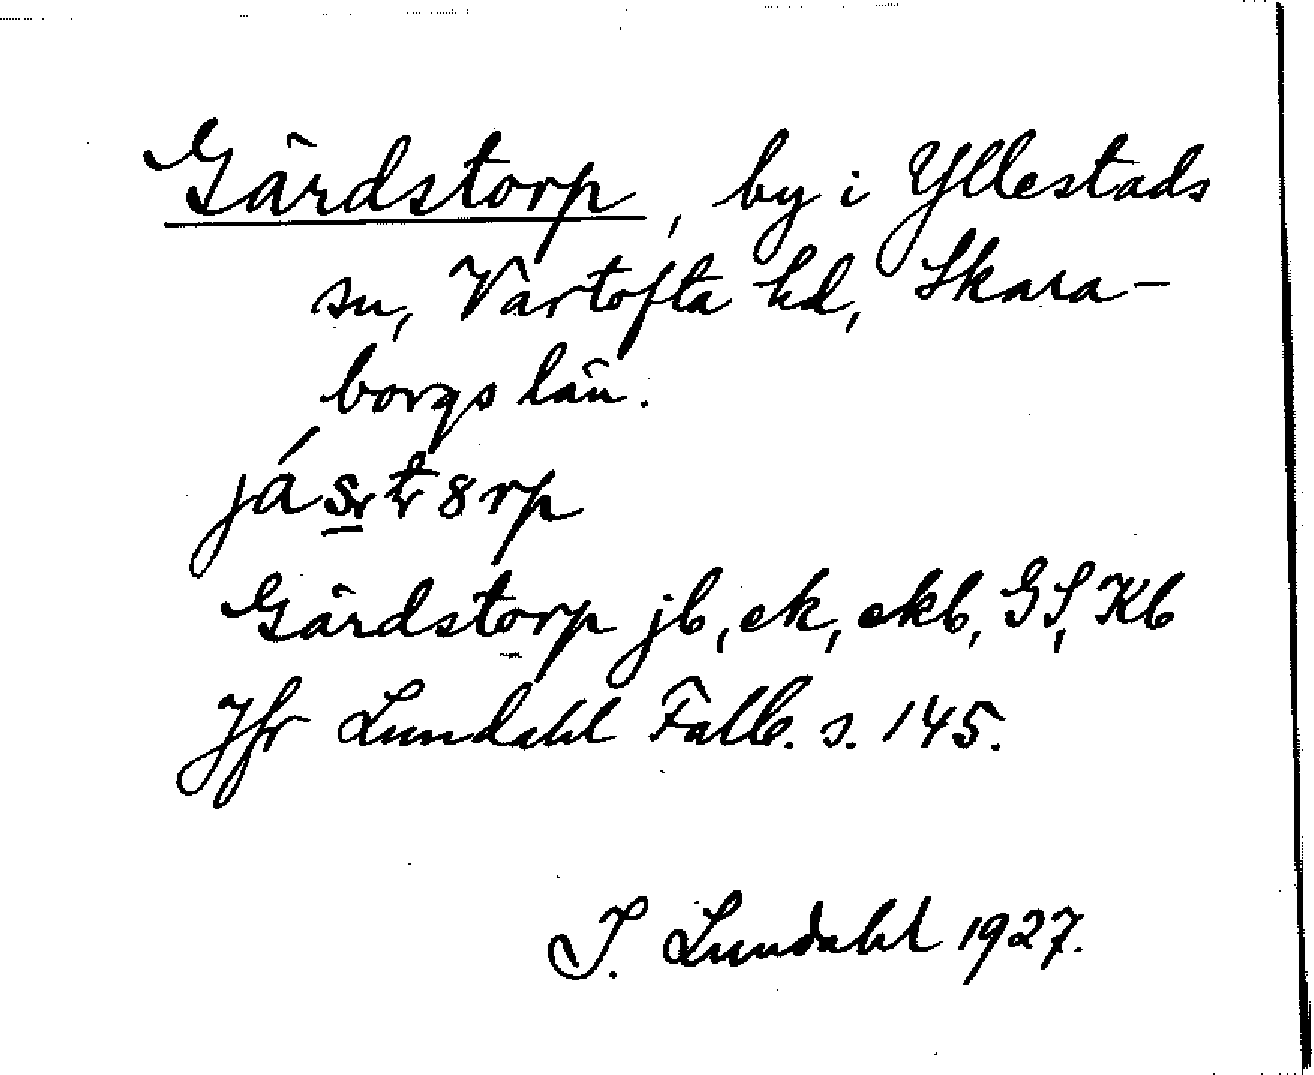 Gärdstorp, by i Yllestads
sn, Vartofta hd, Skara-
borgs län.
Gärdstorp jb, ek, ekb, GS, Kb
Jfr Lundahl Falb. s. 145.
I. Lundahl 1927.